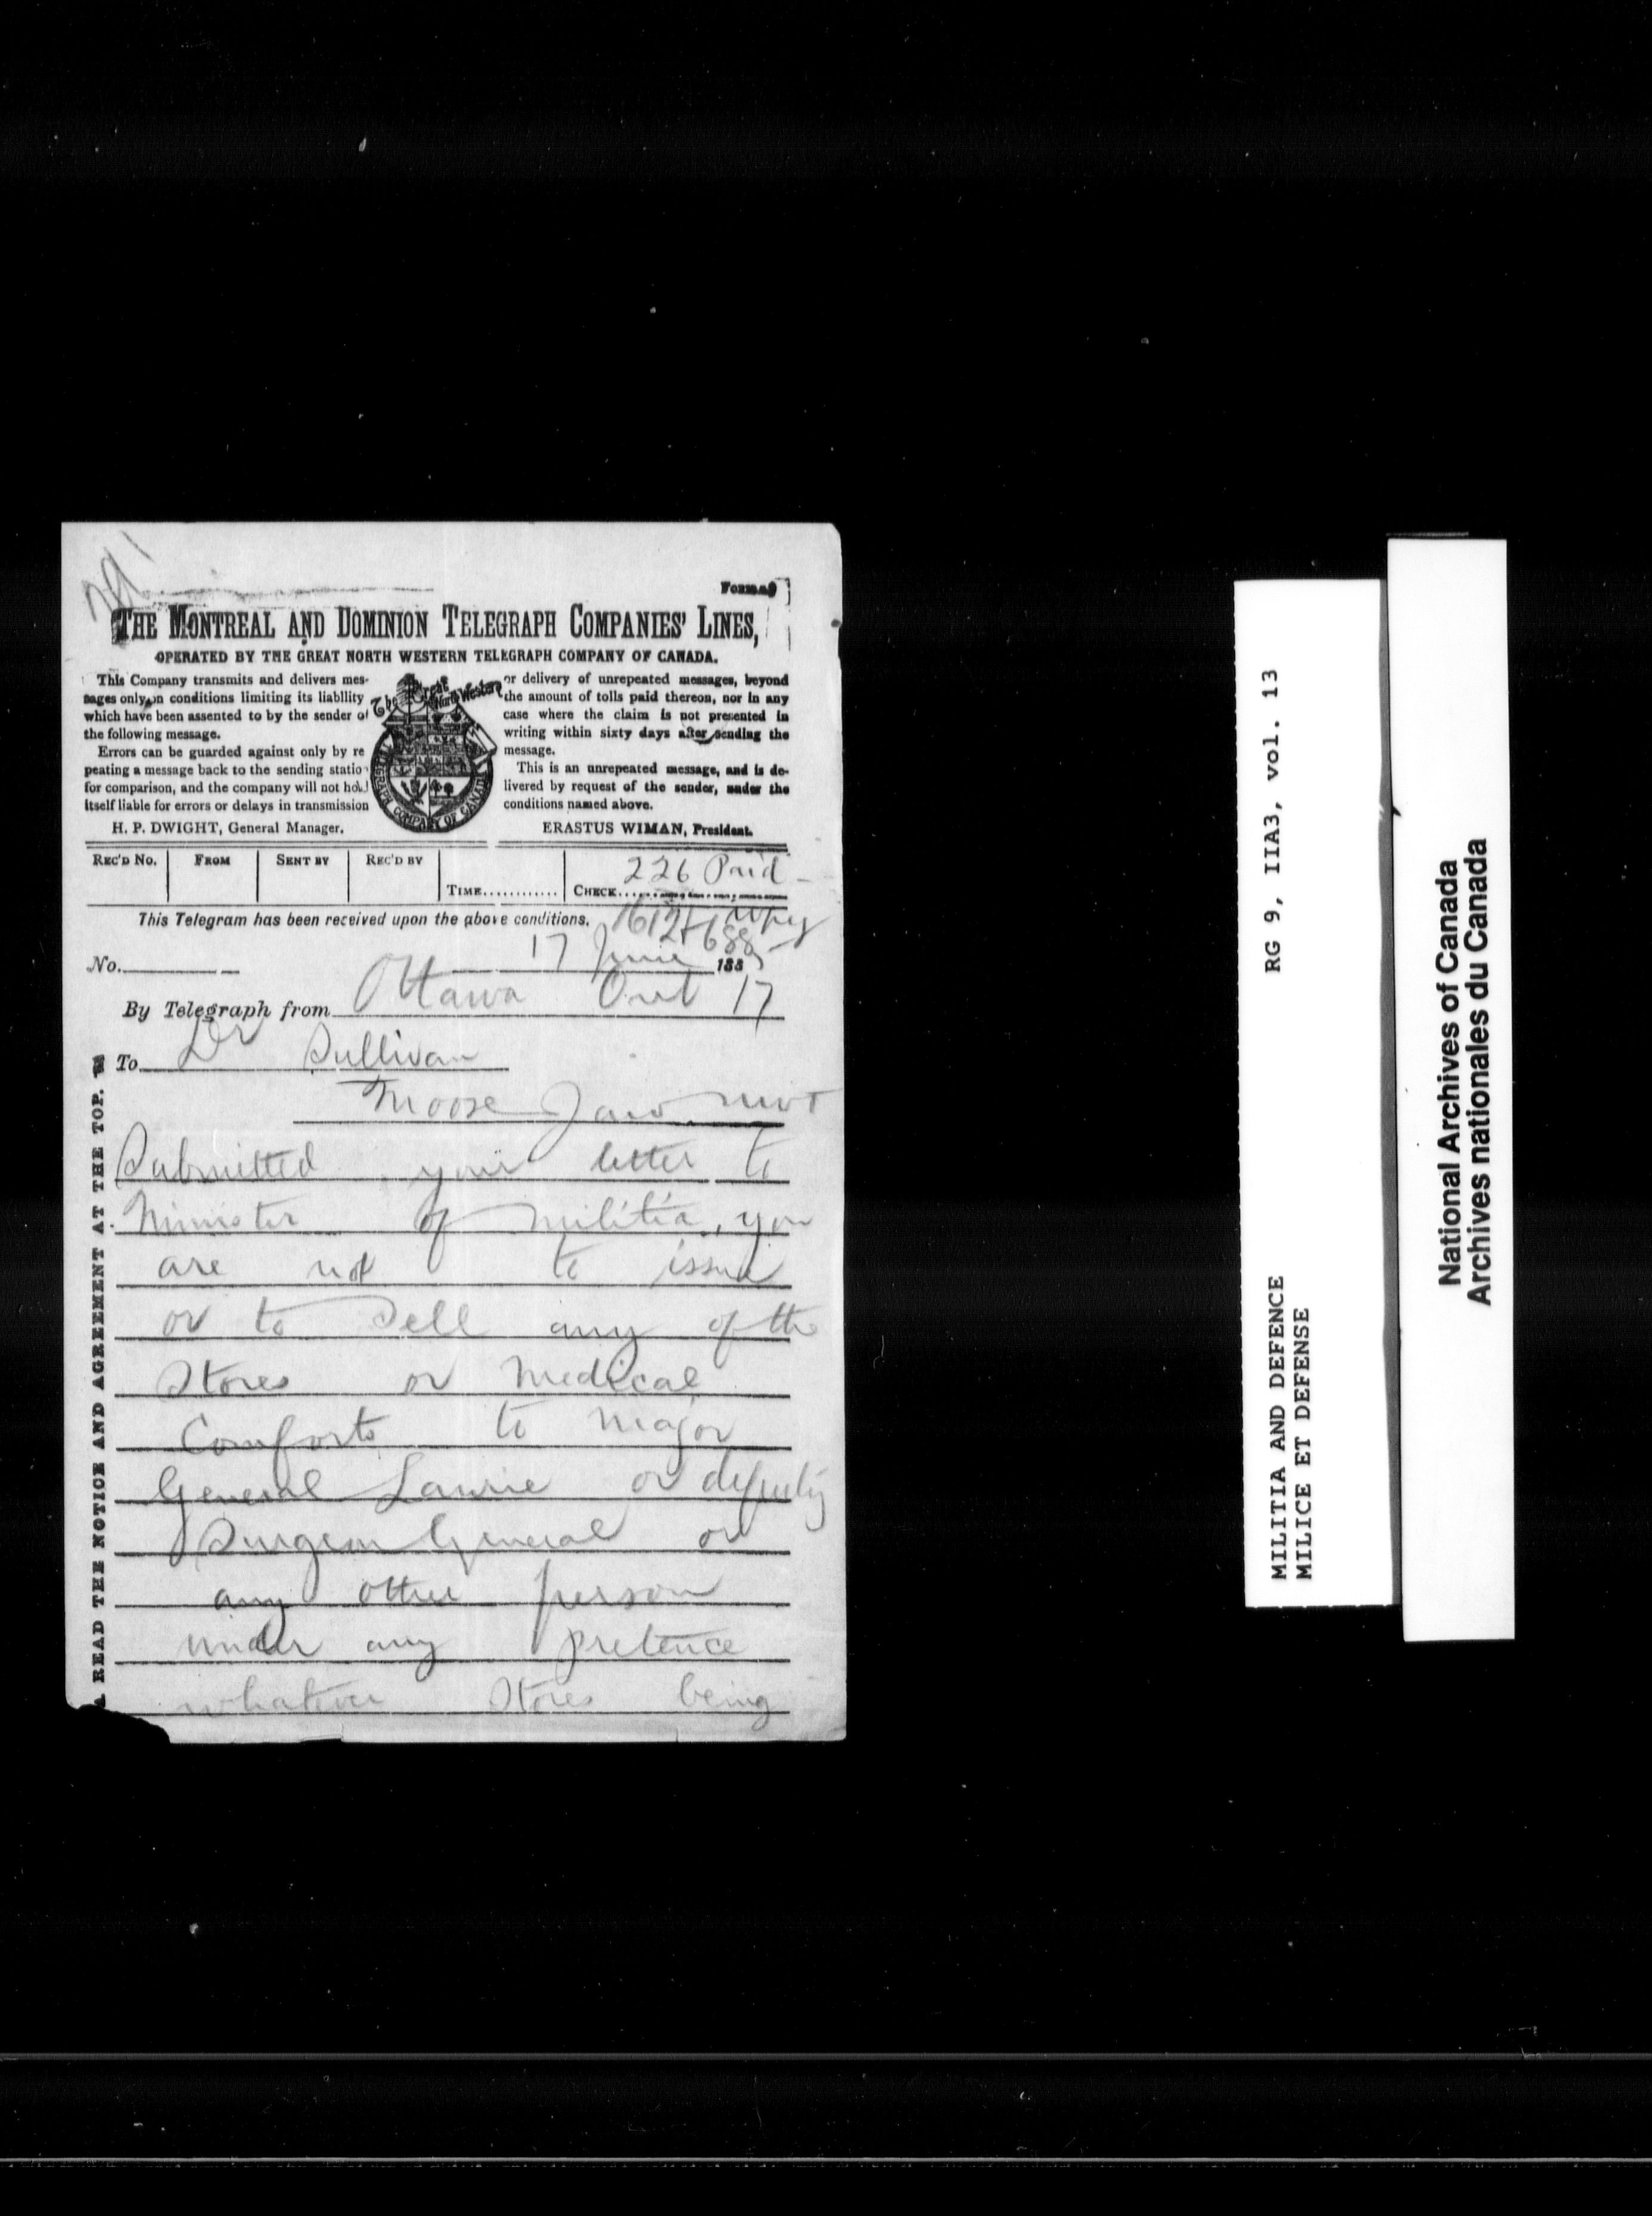 Form 9
THE MONTREAL AND DOMINION TELEGRAPH COMPANIES' LINES,
OPERATED BY THE GREAT NORTH WESTERN TELEGRAPH COMPANY OF CANADA.
This Company transmits and delivers mes-
sages only on conditions limiting its liability
which have been assented to by the sender of
the following message.
Errors can be guarded against only by re
peating a message back to the sending statio
for comparison, and the company will not hold
itself liable for errors or delays in transmission
H. P. DWIGHT, General Manager.
The Great North Western
TELEGRAPH COMPANY OF CANADA
or delivery of unrepeated messages, beyond
the amount of tolls paid thereon, nor in any
case where the claim is not presented in
writing within sixty days after sending the
message.
This is an unrepeated message, and is de-
livered by request of the sender, under the
conditions named above.
ERASTUS WIMAN, President.
REC'D NO. FROM SENT BY REC'D BY TIME............ CHECK.... 226 Paid
This Telegram has been received upon the above conditions.
No. 17 June 1885
By Telegraph from Ottawa Ont 17
To Dr Sullivan
Moose Jaw NWT
Submitted your letter to
Minister of militia, you
are not to issue
or to Sell any of the
Stores or Medical
Comforts to Major
General Laurie or deputy
Surgeon General or
any other person
under any pretence
whatever Stores being
READ THE NOTICE AND AGREEMENT AT THE TOP.
MILITIA AND DEFENCE RG 9, IIA3, vol. 13
MILICE ET DEFENSE
National Archives of Canada
Archives nationales du Canada